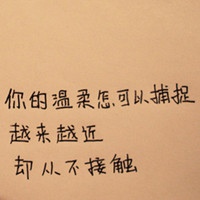 你的温柔怎可以捕捉
越来越近
却从不接触